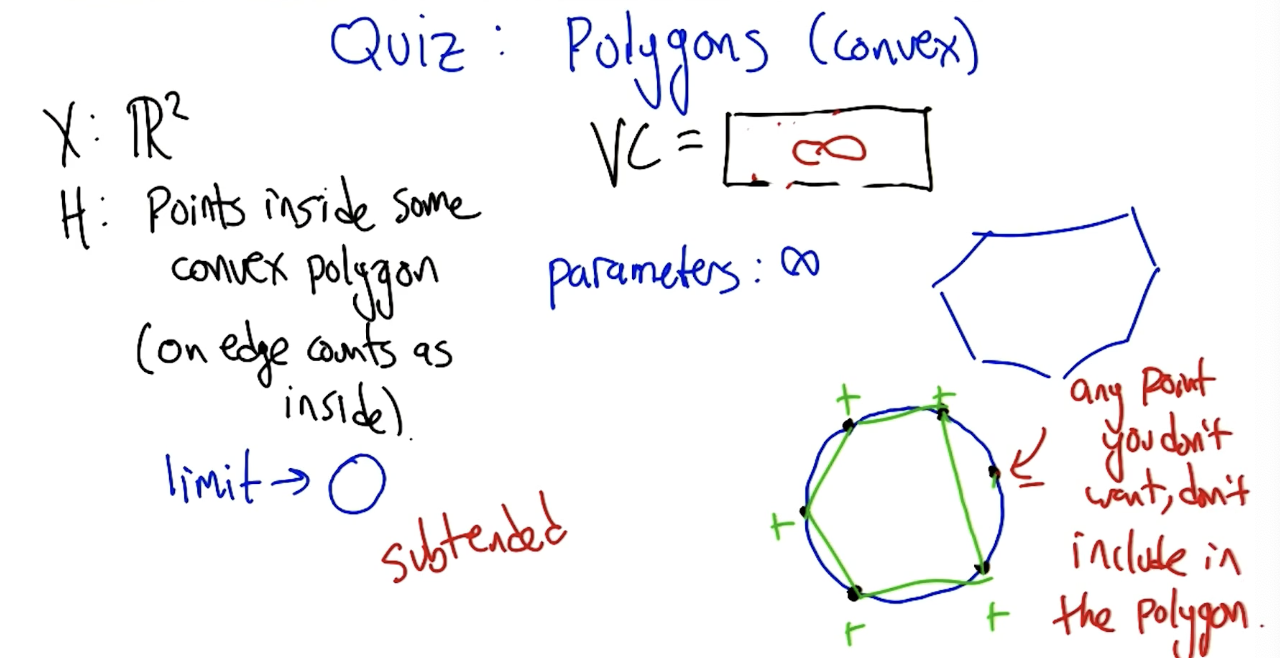 Quiz : Polygons (convex)
X: ℝ²
VC = ∞
H: Points inside some
convex polygon
(on edge counts as
inside).
parameters: ∞
limit → O
subtended
+ +
+
+ +
any point
you don't
want, don't
include in
the polygon.
−